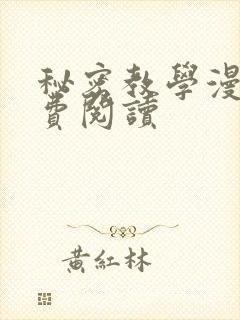 秘密教學漫
費閱讀
黃紅林